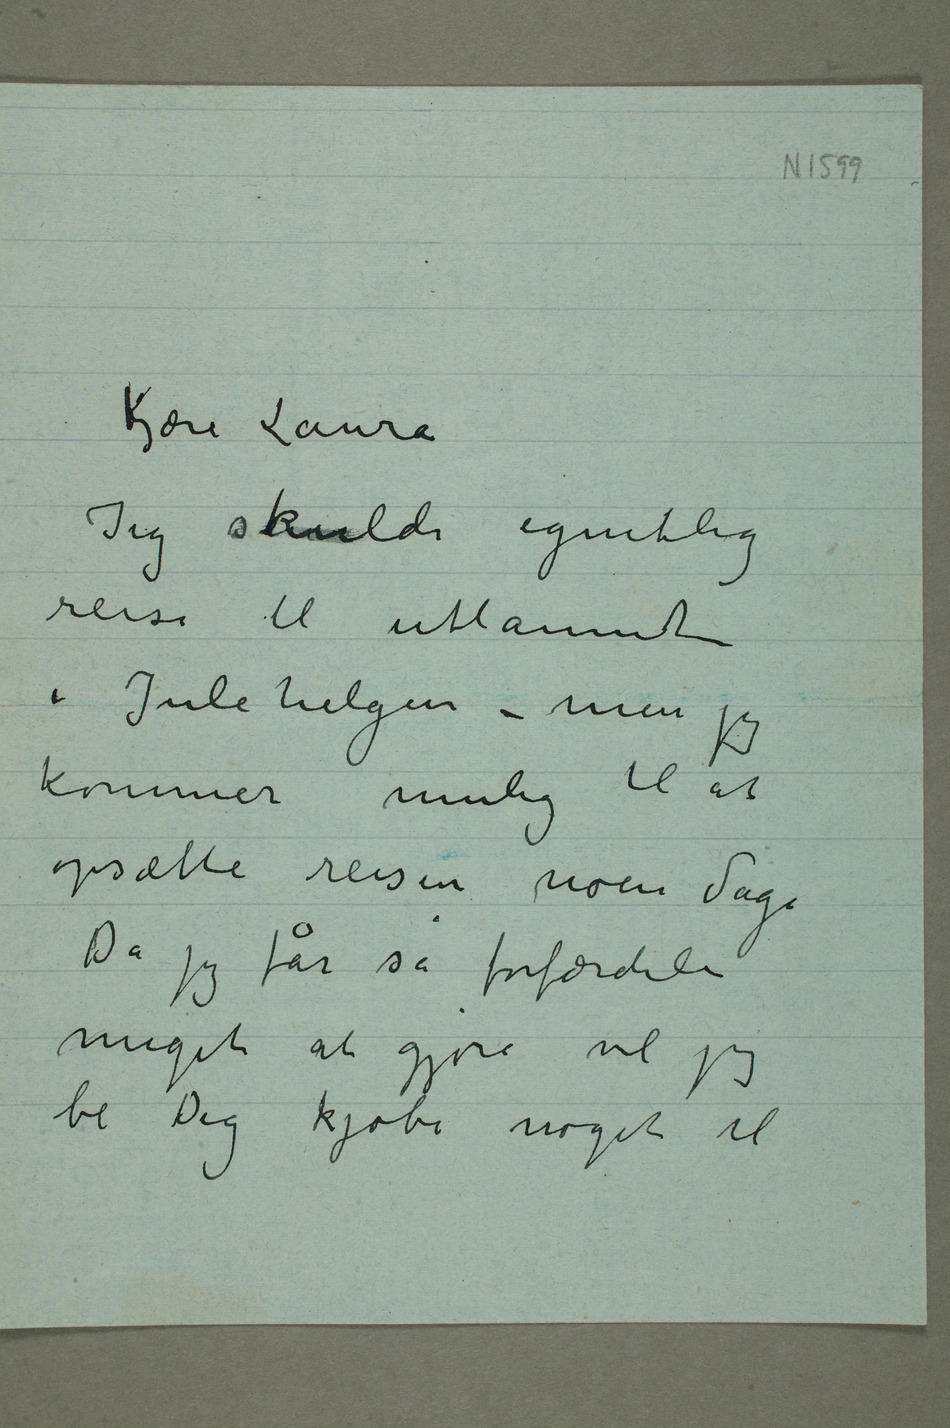 N 1599
Kjære Laura
Jeg skulde egentlig
reise til utlannet
i Julehelgen – men jeg
kommer mulig til at
opsætte reisen noen dage
Da jeg får så forfærdeli
meget at gjøre vil jeg
be Dig kjøbe noget til